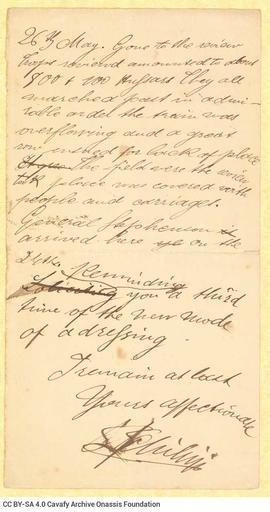 26th May. Gone to the review
troops reviewed amounted to about
1900 + 100 Hussars they all
marched past in admi-
rable order the train was
overflowing and a great
row ensued for lack of place
The field were the review
took place was covered with
people and carriages.
General Stephenson
arrived here on the
24th. Reminding
Soliciting you a third
time of the new mode
of adressing.
I remain at last
Yours affectionate
CC BY-SA 4.0 Cavafy Archive Onassis Foundation